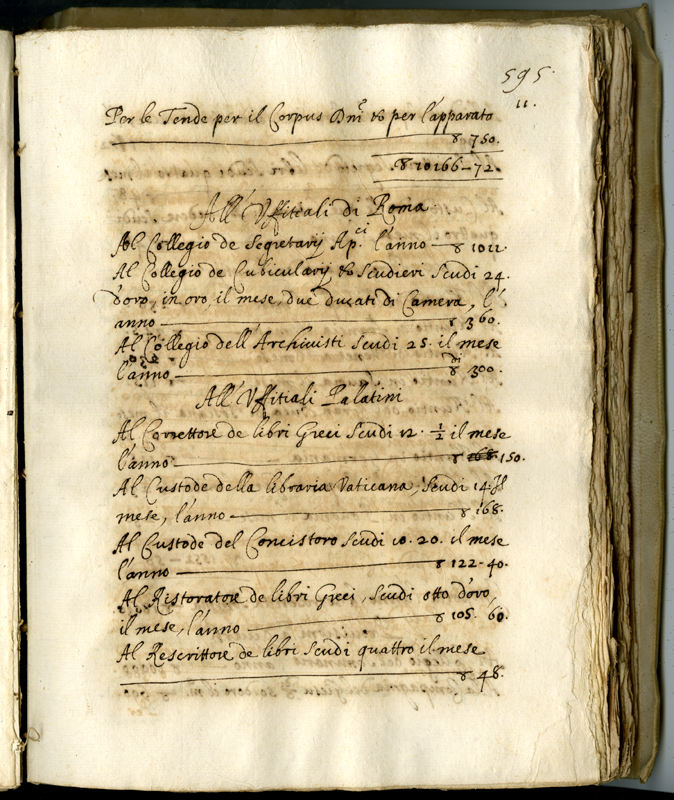 595.
11.
Per le Tende per il Corpus Dnĩ & per l'apparato
▽ 750.
▽ 10166–72.
All' Vffitiali di Roma
Al Collegio de Segretarij Ap.ci l'anno — ▽ 1011.
Al Collegio de Cubicularij & Scudieri Scudi 24.
d'oro, in oro il mese, due ducati di Camera, l'
anno — ▽ 360.
Al Collegio dell'Archivisti Scudi 25. il mese
l'anno — ▽ di 300.
All' Vffitiali Palatini
Al Correttore de libri Greci Scudi 12. 1/2 il mese
l'anno — ▽ 150.
Al Custode della libraria Vaticana, Scudi 14. Il
mese, l'anno — ▽ 168.
Al Custode del Concistoro Scudi 10. 20. il mese
l'anno — ▽ 122-40.
Al Ristoratore de libri Greci, Scudi otto d'oro,
il mese, l'anno — ▽ 105. 60.
Al Rescrittore de libri Scudi quattro il mese
▽ 48.